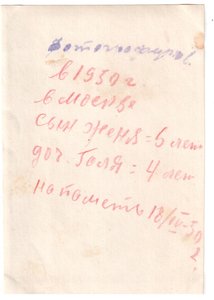 в 1950 г.
в москве
сын Женя = 6 лет
доч. Галя = 4 лет
на паметь 18/IV-50
г.